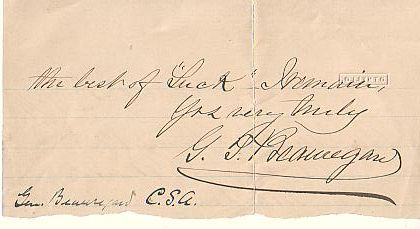 the best of "Luck". I remain,
Yrs very truly
G. T. Beauregard
Gen. Beauregard C.S.A.